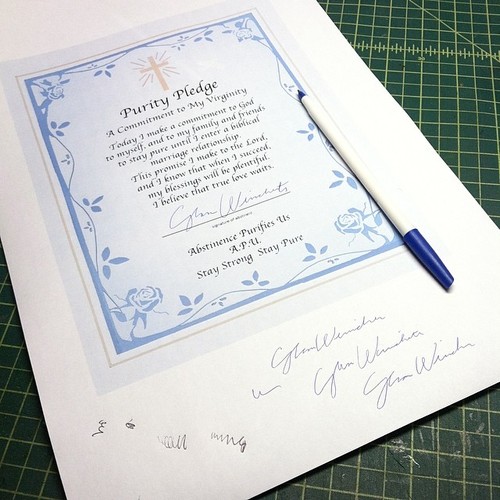 Purity Pledge
A Commitment to My Virginity
Today I make a commitment to God
to myself, and to my family and friends
to stay pure until I enter a biblical
marriage relationship.
This promise I make to the Lord,
and I know that when I succeed,
my blessings will be plentiful.
I believe that true love waits.
Abstinence Purifies Us
A.P.U.
Stay Strong Stay Pure